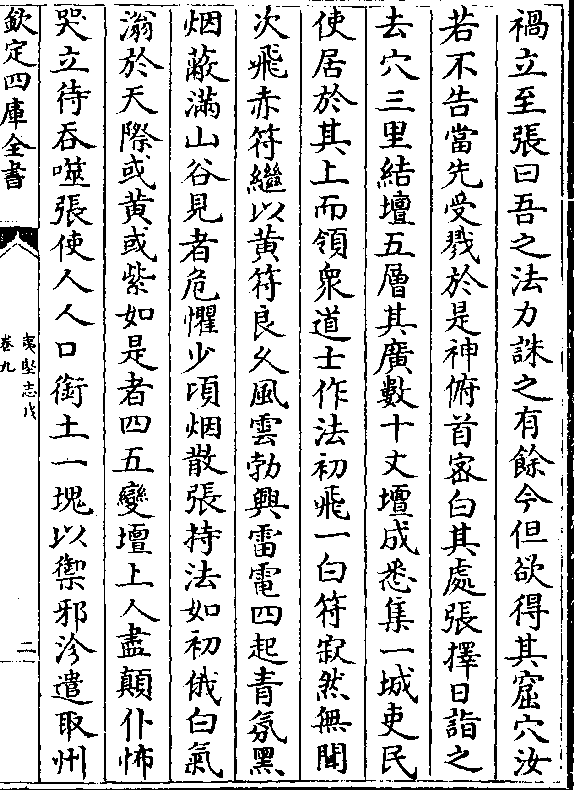 禍立至張曰吾之法力誅之有餘今但欲得其窟穴汝
若不告當先受戮於是神俯首密白其處張擇日詣之
去穴三里結壇五層其廣數十丈壇成悉集一城吏民
使居於其上而領衆道士作法初飛一白符寂然無聞
次飛赤符繼以黄符良久風雲勃興雷電四起青氛黑
烟蔽滿山谷見者危懼少頃烟散張持法如初俄白氣
滃於天際或黄或紫如是者四五變壇上人盡顛仆怖
哭立待吞噬張使人人口銜土一塊以禦邪沴遣取州
欽定四庫全書
夷堅志戊
卷九
二